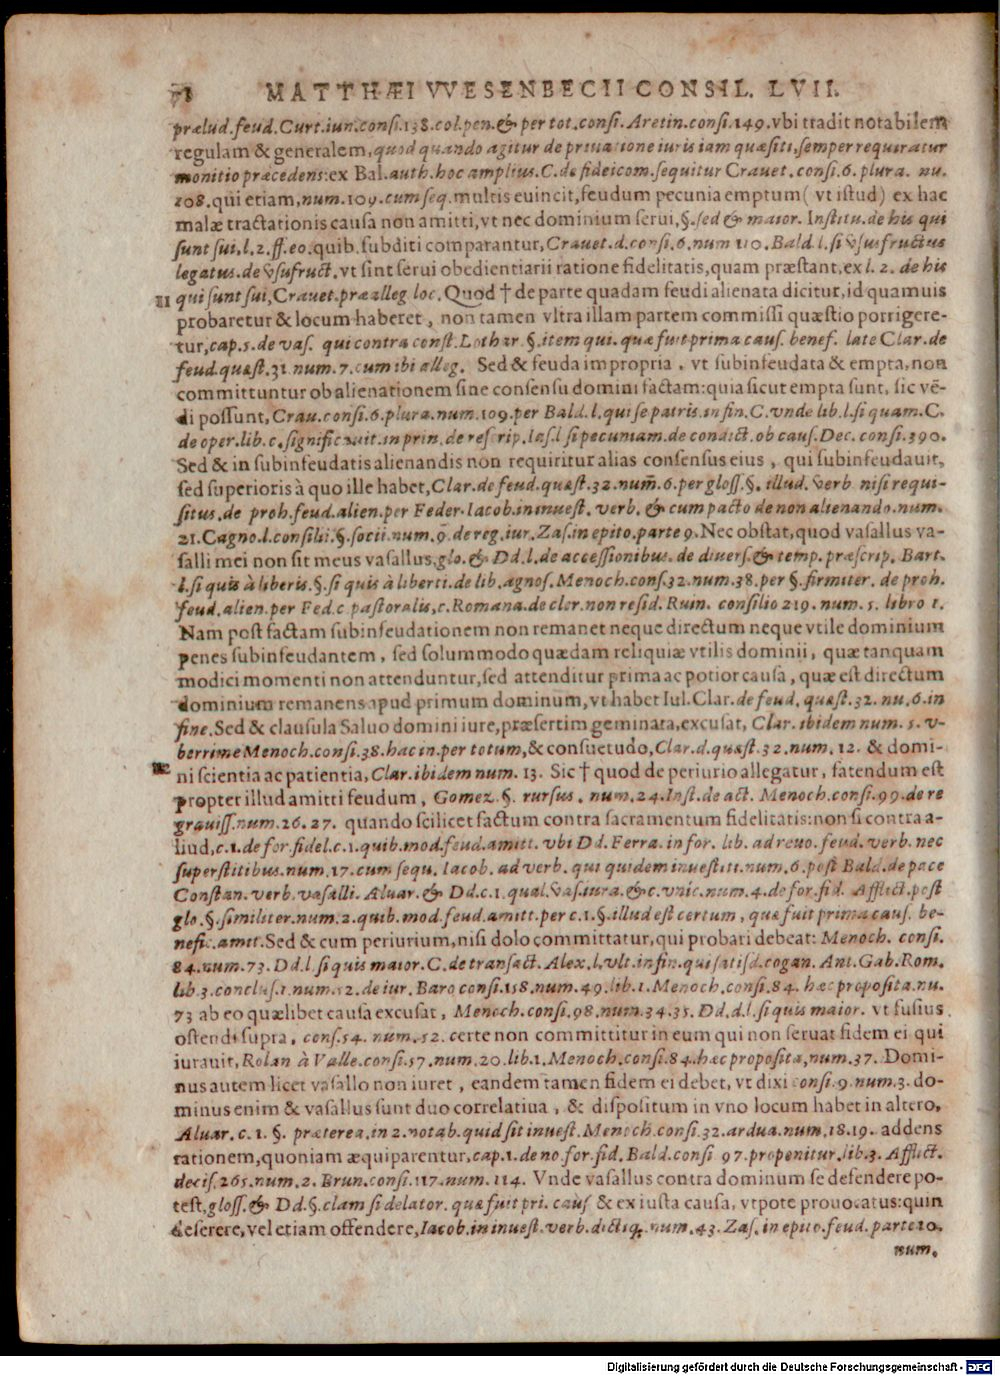 MATTHÆI VVESENBECII CONSIL. LVII.
prælud.feud.Curt.iun.consi.138.col.pen.& per tot.consi.Aretin.consi.149.vbi tradit notabilem
regulam & generalem,quod quando agitur de priuatione iuris iam quæsiti,semper requiratur
monitio præcedens:ex Bal.auth.hoc amplius.C.de fideicom.sequitur Crauet.consi.6.plura.nu.
108.qui etiam,num.109.cum seq.multis euincit,feudum pecunia emptum( vt istud) ex hac
malæ tractationis causa non amitti,vt nec dominium serui,§.sed & maior. Institu.de his qui
sunt sui,l.2.ff.eo.quib.subditi comparantur,Crauet.d.consi.6.num 110.Bald.l.si vsusfructus
legatus.de vsufruct.vt sint serui obedientiarii ratione fidelitatis,quam præstant,ex l.2. de his
III qui sunt sui,Crauet.præalleg loc.Quod † de parte quadam feudi alienata dicitur,id quamuis
probaretur & locum haberet, non tamen vltra illam partem commissi quæstio porrigere-
tur,cap.1.de vas. qui contra const.Lothar.§.item qui.quæ fuit prima caus. benef. late Clar.de
feud.quæst.31.num.7.cum ibi alleg. Sed & feuda impropria, vt subinfeudata & empta,non
committuntur ob alienationem sine consensu domini factam:quia sicut empta sunt, sic vē-
di possunt,Crau.consi.6.plura.num.109.per Bald.l.qui se patris.in fin.C.vnde lib.l.si quam.C.
de oper.lib.c.significauit.in prin.de rescrip.Ias.l si pecuniam.de condict.ob caus.Dec.consi.390.
Sed & in subinfeudatis alienandis non requiritur alias consensus eius, qui subinfeudauit,
sed superioris à quo ille habet,Clar.de feud.quæst.32.num.6.per gloss.§.illud.verb nisi requi-
situs.de proh.feud.alien.per Feder.Iacob.in inuest. verb. & cum pacto de non alienando.num.
21.Cagno.l.consilii.§.socii.num.9.de reg.iur.Zas.in epito.parte 9.Nec obstat,quod vasallus va-
salli mei non sit meus vasallus,glo.& Dd.l.de accessionibus.de diuers.& temp. præscrip. Bart.
l.si quis à liberis.§.si quis à liberti.de lib.agnos.Menoch.cons.32.num.38.per §.firmiter. de proh.
feud.alien.per Fed.c pastoralis,c.Romana.de cler.non resid.Ruin. consilio 219.num.5. libro 1.
Nam post factam subinfeudationem non remanet neque directum neque vtile dominium
penes subinfeudantem, sed solummodo quædam reliquiæ vtilis dominii, quæ tanquam
modici momenti non attenduntur,sed attenditur prima ac potior causa, quæ est directum
dominium remanens apud primum dominum,vt habet Iul.Clar.de feud. quæst.32.nu.6.in
fine.Sed & clausula Saluo domini iure,præsertim geminata,excusat, Clar.ibidem num.5.v-
berrime Menoch.consi.38.hac in.per totum,& consuetudo,Clar.d.quæst.32.num.12. & domi-
ni scientia ac patientia,Clar.ibidem num. 13. Sic † quod de periurio allegatur, fatendum est
propter illud amitti feudum, Gomez.§. rursus. num.24.Inst.de act. Menoch.consi.99.de re
grauiss.num.26.27. quando scilicet factum contra sacramentum fidelitatis:non si contra a-
liud,c.1.de for.fidel.c.1.quib.mod.feud.amitt.vbi Dd.Ferra.in for. lib. ad reuo.feud.verb.nec
superstitibus.num.17.cum sequ.Iacob.ad verb. qui quidem inuestiti.num.6.post Bald.de pace
Constan.verb.vasalli. Aluar.& Dd.c.1.qual.vasi iura.&c.vnic.num.4.de for.fid. Afflict.post
glo.§.similiter.num.2.quib.mod.feud.amitt.per c.1.§.illud est certum, quæ fuit prima caus.be-
nefic.amit.Sed & cum periurium,nisi dolo committatur,qui probari debeat: Menoch. consi.
84.num.73.Dd.l.si quis maior.C.de transact.Alex.l.vlt.in fin.qui satisd.cogan. Ant.Gab.Rom.
lib.3.conclus.1.num.52.de iur.Baro consi.158.num.49.lib.1.Menoch.consi.84.hæc proposita.nu.
73 ab eo quælibet causa excusat, Menoch.consi.98.num.34.35.Dd.d.l.si quis maior. vt fusius
ostendi supra, cons.54.num.52. certe non committitur in eum qui non seruat fidem ei qui
iurauit, Rolan à Valle.consi.57.num.20.lib.1.Menoch.consi.84.hæc proposita,num.37. Domi-
nus autem licet vasallo non iuret, eandem tamen fidem ei debet, vt dixi consi.9.num.3. do-
minus enim & vasallus sunt duo correlatiua, & dispositum in vno locum habet in altero,
Aluar.c.1.§. præterea.in 2.notab.quid sit inuest.Menoch.consi.32.ardua.num.18.19. addens
rationem,quoniam æquiparentur,cap.1.de no.for.fid.Bald.consi 97.proponitur.lib.3. Afflict.
decis.265.num.2.Brun.consi.117.num.114. Vnde vasallus contra dominum se defendere po-
test,gloss.& Dd.§.clam si delator.quæ fuit pri.caus & ex iusta causa,vtpote prouocatus:quin
deserere,vel etiam offendere,Iacob.in inuest.verb.dictiq.num.43.Zas.in epito.feud.parte 10.
num.
Digitalisierung gefördert durch die Deutsche Forschungsgemeinschaft - DFG